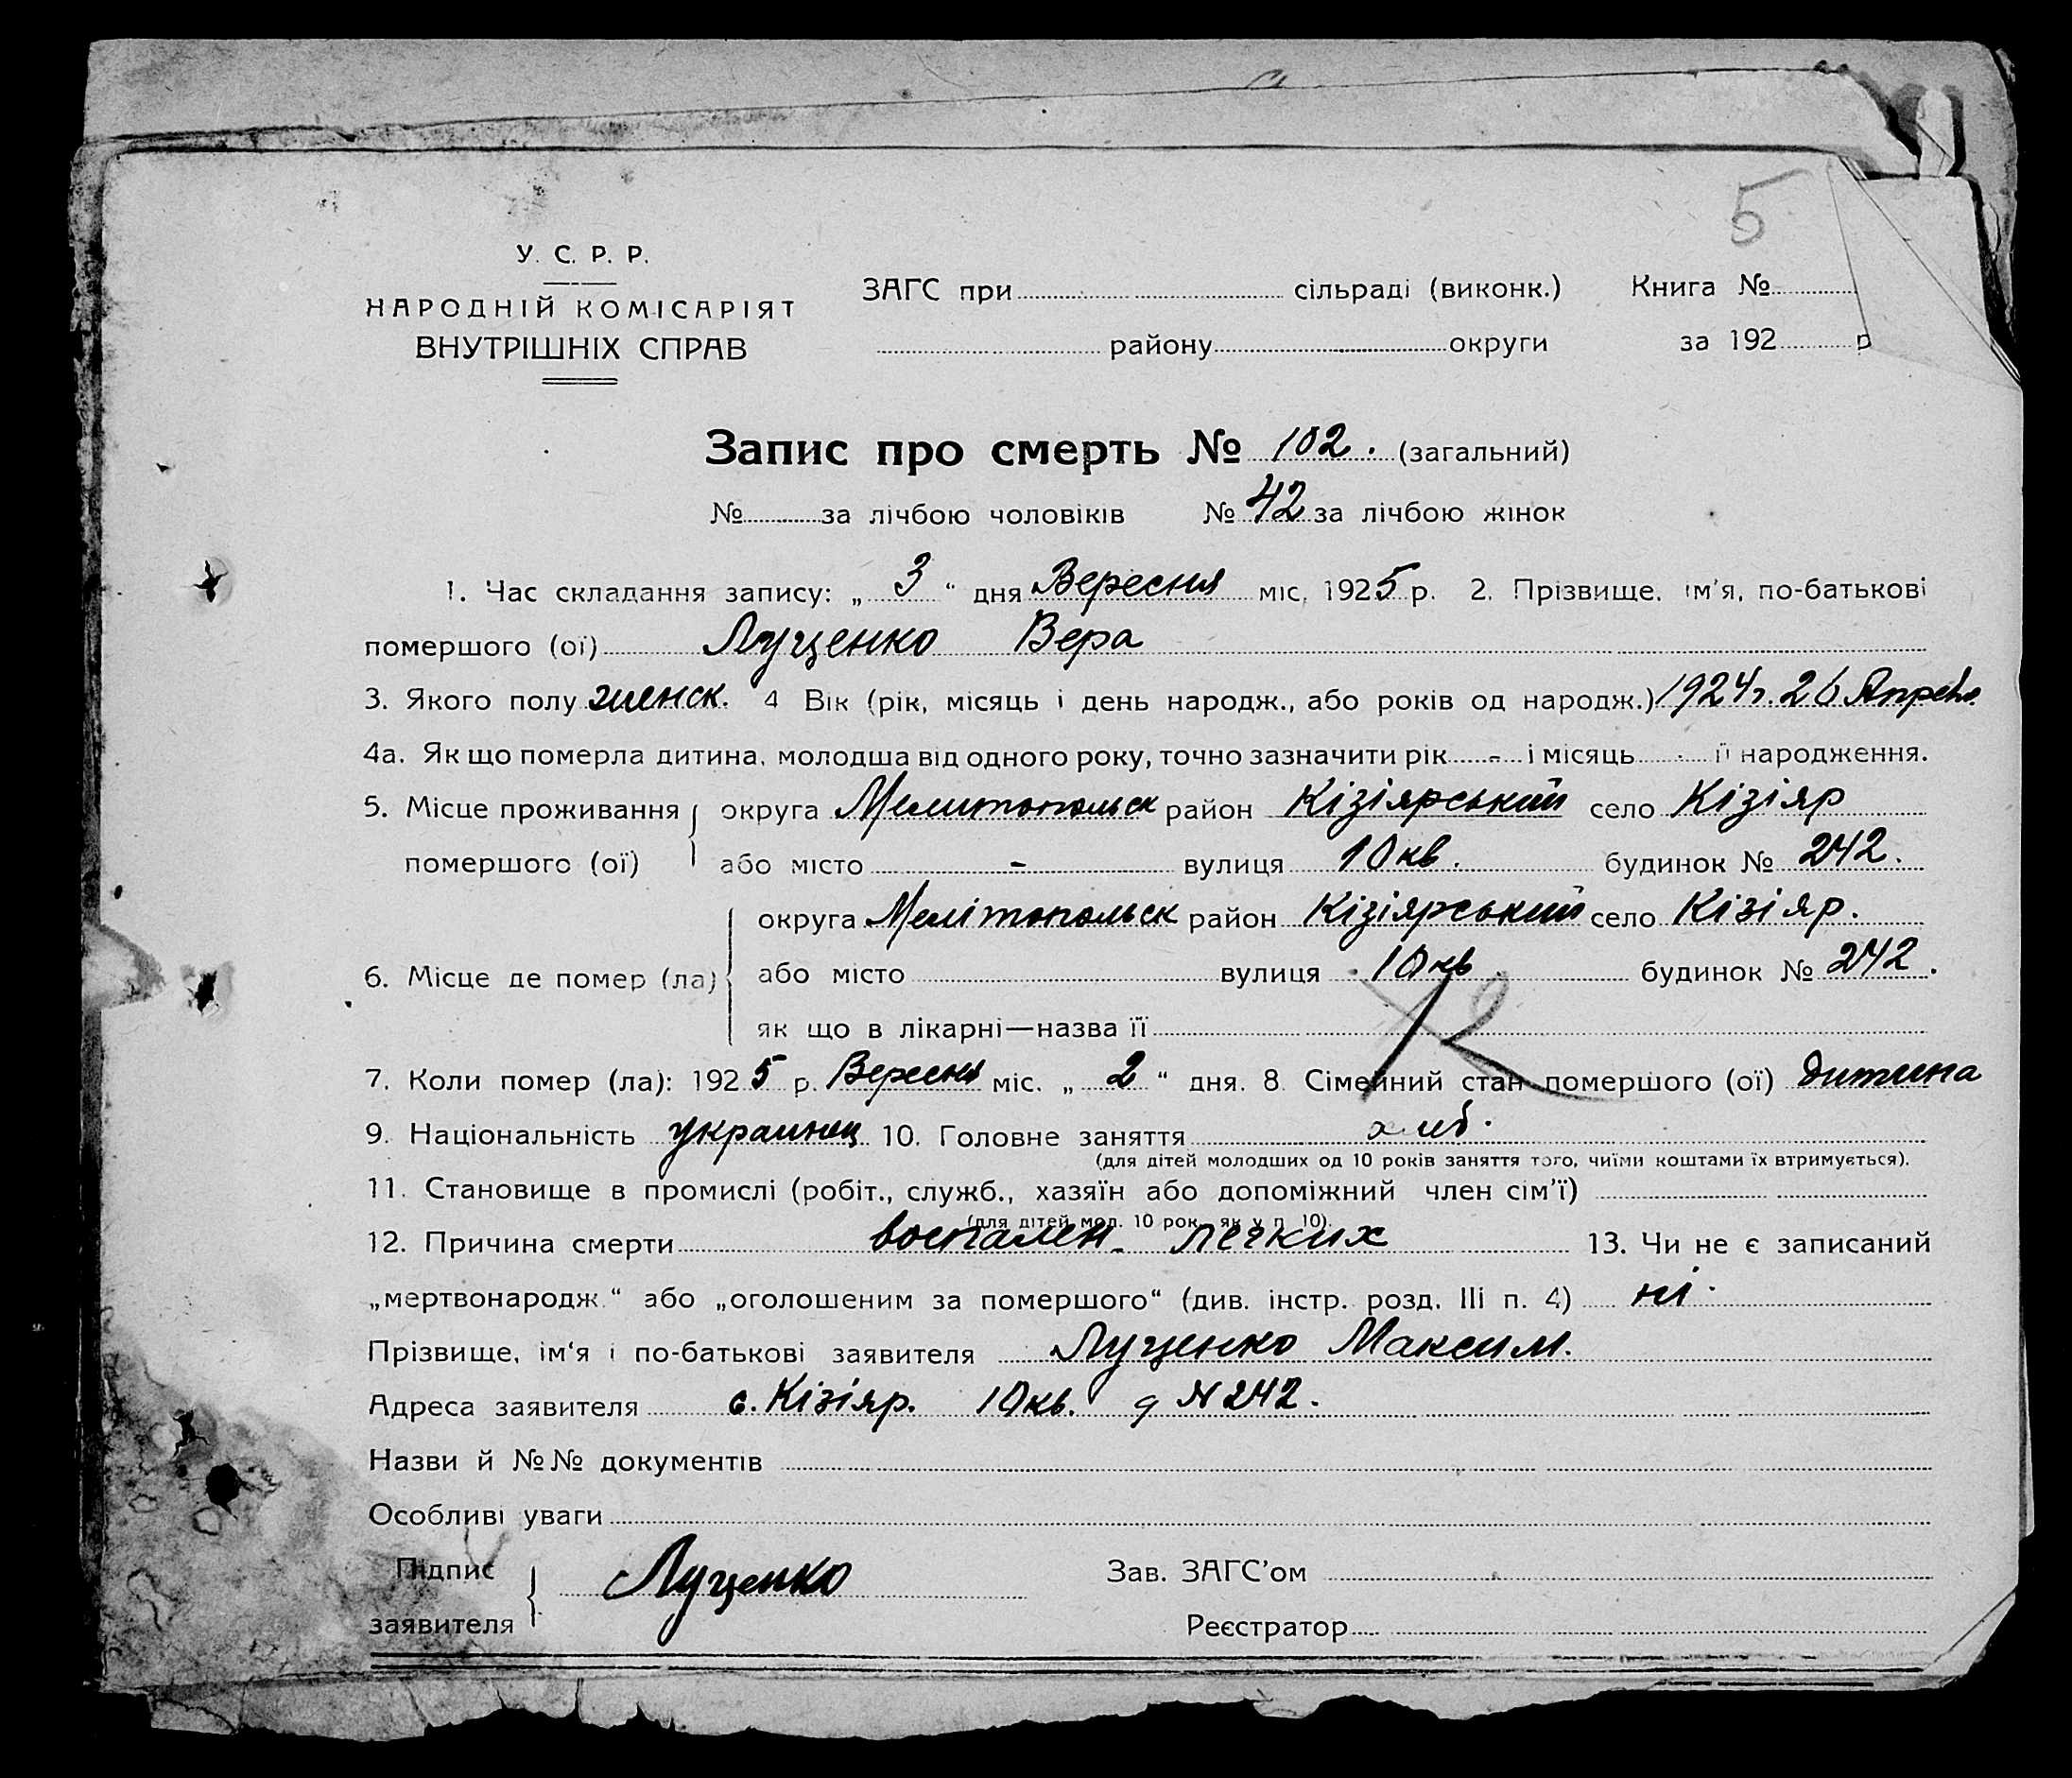 5
У. С. Р. Р.
НАРОДНІЙ КОМІСАРІЯТ
ВНУТРІШНІХ СПРАВ
ЗАГС при сільраді (виконк.) Книга №
району округи за 192 р
Запис про смерть № 102. (загальний)
№ за лічбою чоловіків № 42 за лічбою жінок
1. Час складання запису: „ 3 “ дня Вересня міс. 1925 р. 2. Прізвище, ім'я, по-батькові
помершого (ої) Луценко Вера
3. Якого полу женск. 4 Вік (рік, місяць і день народж., або років од народж.) 1924 г. 26 Апреля
4а. Як що померла дитина, молодша від одного року, точно зазначити рік - і місяць - її народження.
5. Місце проживання округа Мелитопольск район Кізіярський село Кізіяр
помершого (ої) або місто - вулиця 10 кв. будинок № 242.
округа Мелітопольск район Кізіярський село Кізіяр.
6. Місце де помер (ла) або місто вулиця 10 кв. будинок № 242.
як що в лікарні—назва її
7. Коли помер (ла): 1925 р. Вересня міс. „ 2 “ дня. 8. Сімейний стан помершого (ої) дитина
9. Національність украинец 10. Головне заняття
(для дітей молодших од 10 років заняття того, чиїми коштами їх втримується).
11. Становище в промислі (робіт., служб., хазяїн або допоміжний член сім'ї)
(для дітей мол. 10 рок. як у п. 10).
12. Причина смерти воспален. легких 13. Чи не є записаний
„мертвонародж.“ або „оголошеним за помершого“ (див. інстр. розд. III п. 4) ні.
Прізвище, ім'я і по-батькові заявителя Луценко Максим.
Адреса заявителя с. Кізіяр. 10 кв. д № 242.
Назви й №№ документів
Особливі уваги
Підпис Луценко Зав. ЗАГС'ом
заявителя Реєстратор